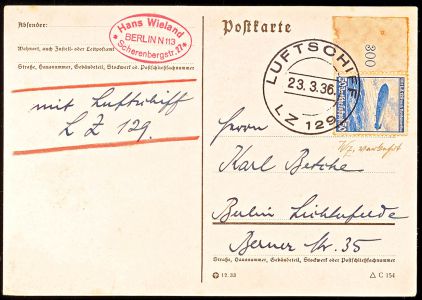 Absender:
* Hans Wieland *
BERLIN N 113
Scherenbergstr. 27
Wohnort, auch Zustell- oder Leitpostamt
Straße, Hausnummer, Gebäudeteil, Stockwerk od. Postschließfachnummer
mit Luftschiff
LZ 129.
Postkarte
LUFTSCHIFF
23.3.36.
LZ 129
300
Herrn
Karl Betche
Berlin Lichterfelde
Berner Str. 35
Straße, Hausnummer, Gebäudeteil, Stockwerk oder Postschließfachnummer
12. 33
C 154